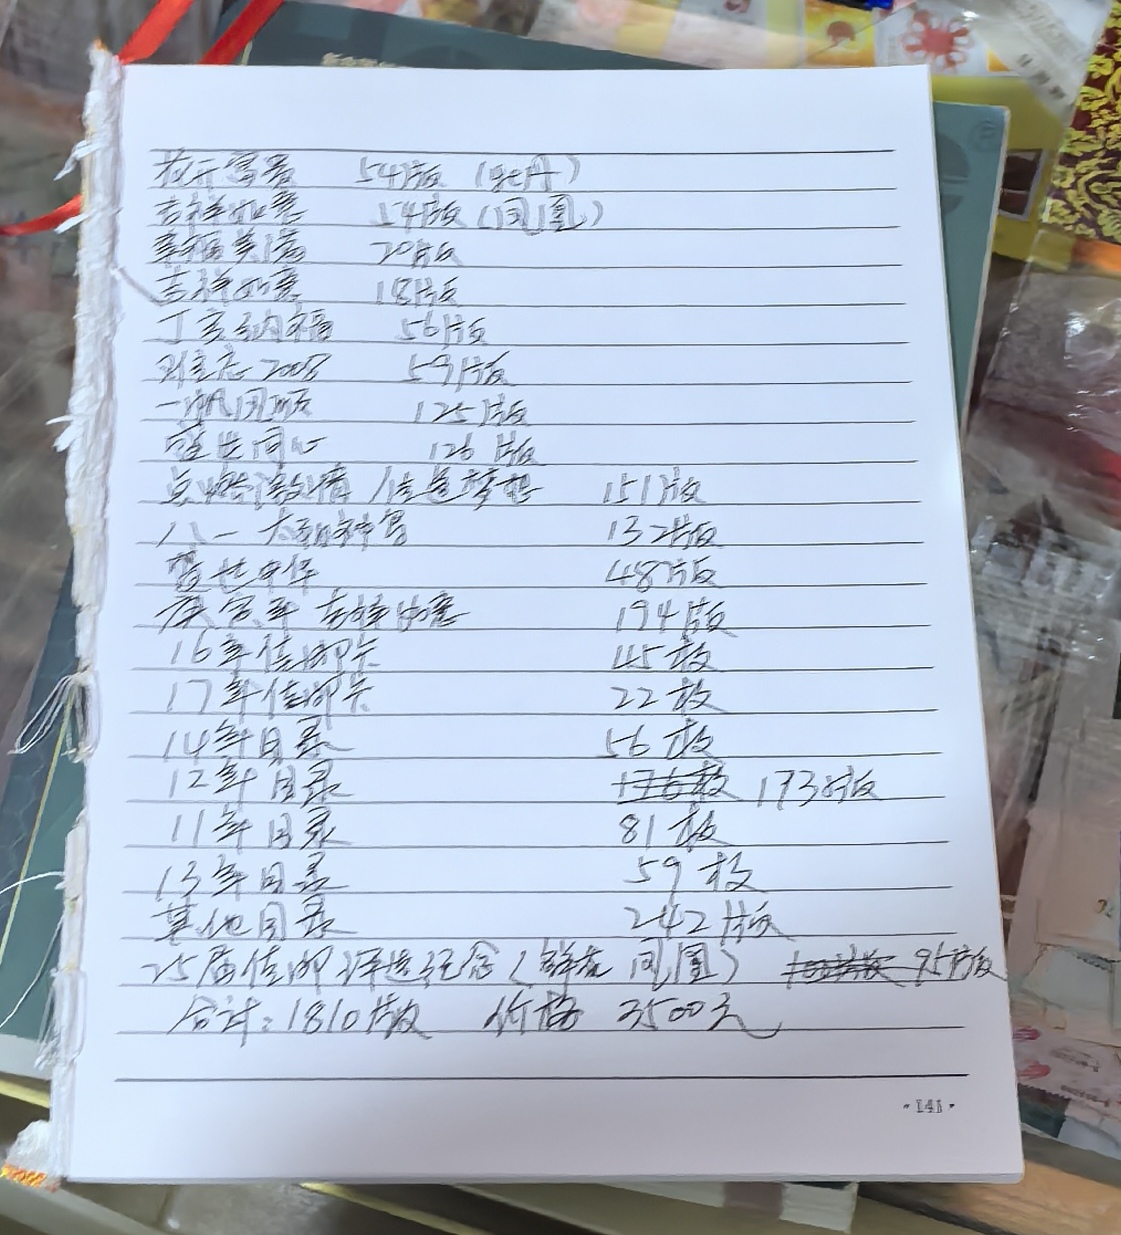 花开富贵 54版 (牡丹)
吉祥如意 54版 (凤凰)
幸福美满 20版
吉祥如意 18版
丁亥纳福 56版
2008 59版
一帆风顺 125版
盛世同心 126版
点燃激情 传递梦想 151版
八一 太阳神鸟 132版
盛世中华 48版
庚寅年 吉祥如意 194版
16年佳邮卡 45枚
17年佳邮卡 22枚
14年目录 56枚
12年目录 176枚 173版
11年目录 81枚
13年目录 59枚
其他目录 242版
25届佳邮评选纪念 (鲜花 凤凰) 95版
合计:1810版 价格 3500元
·141·